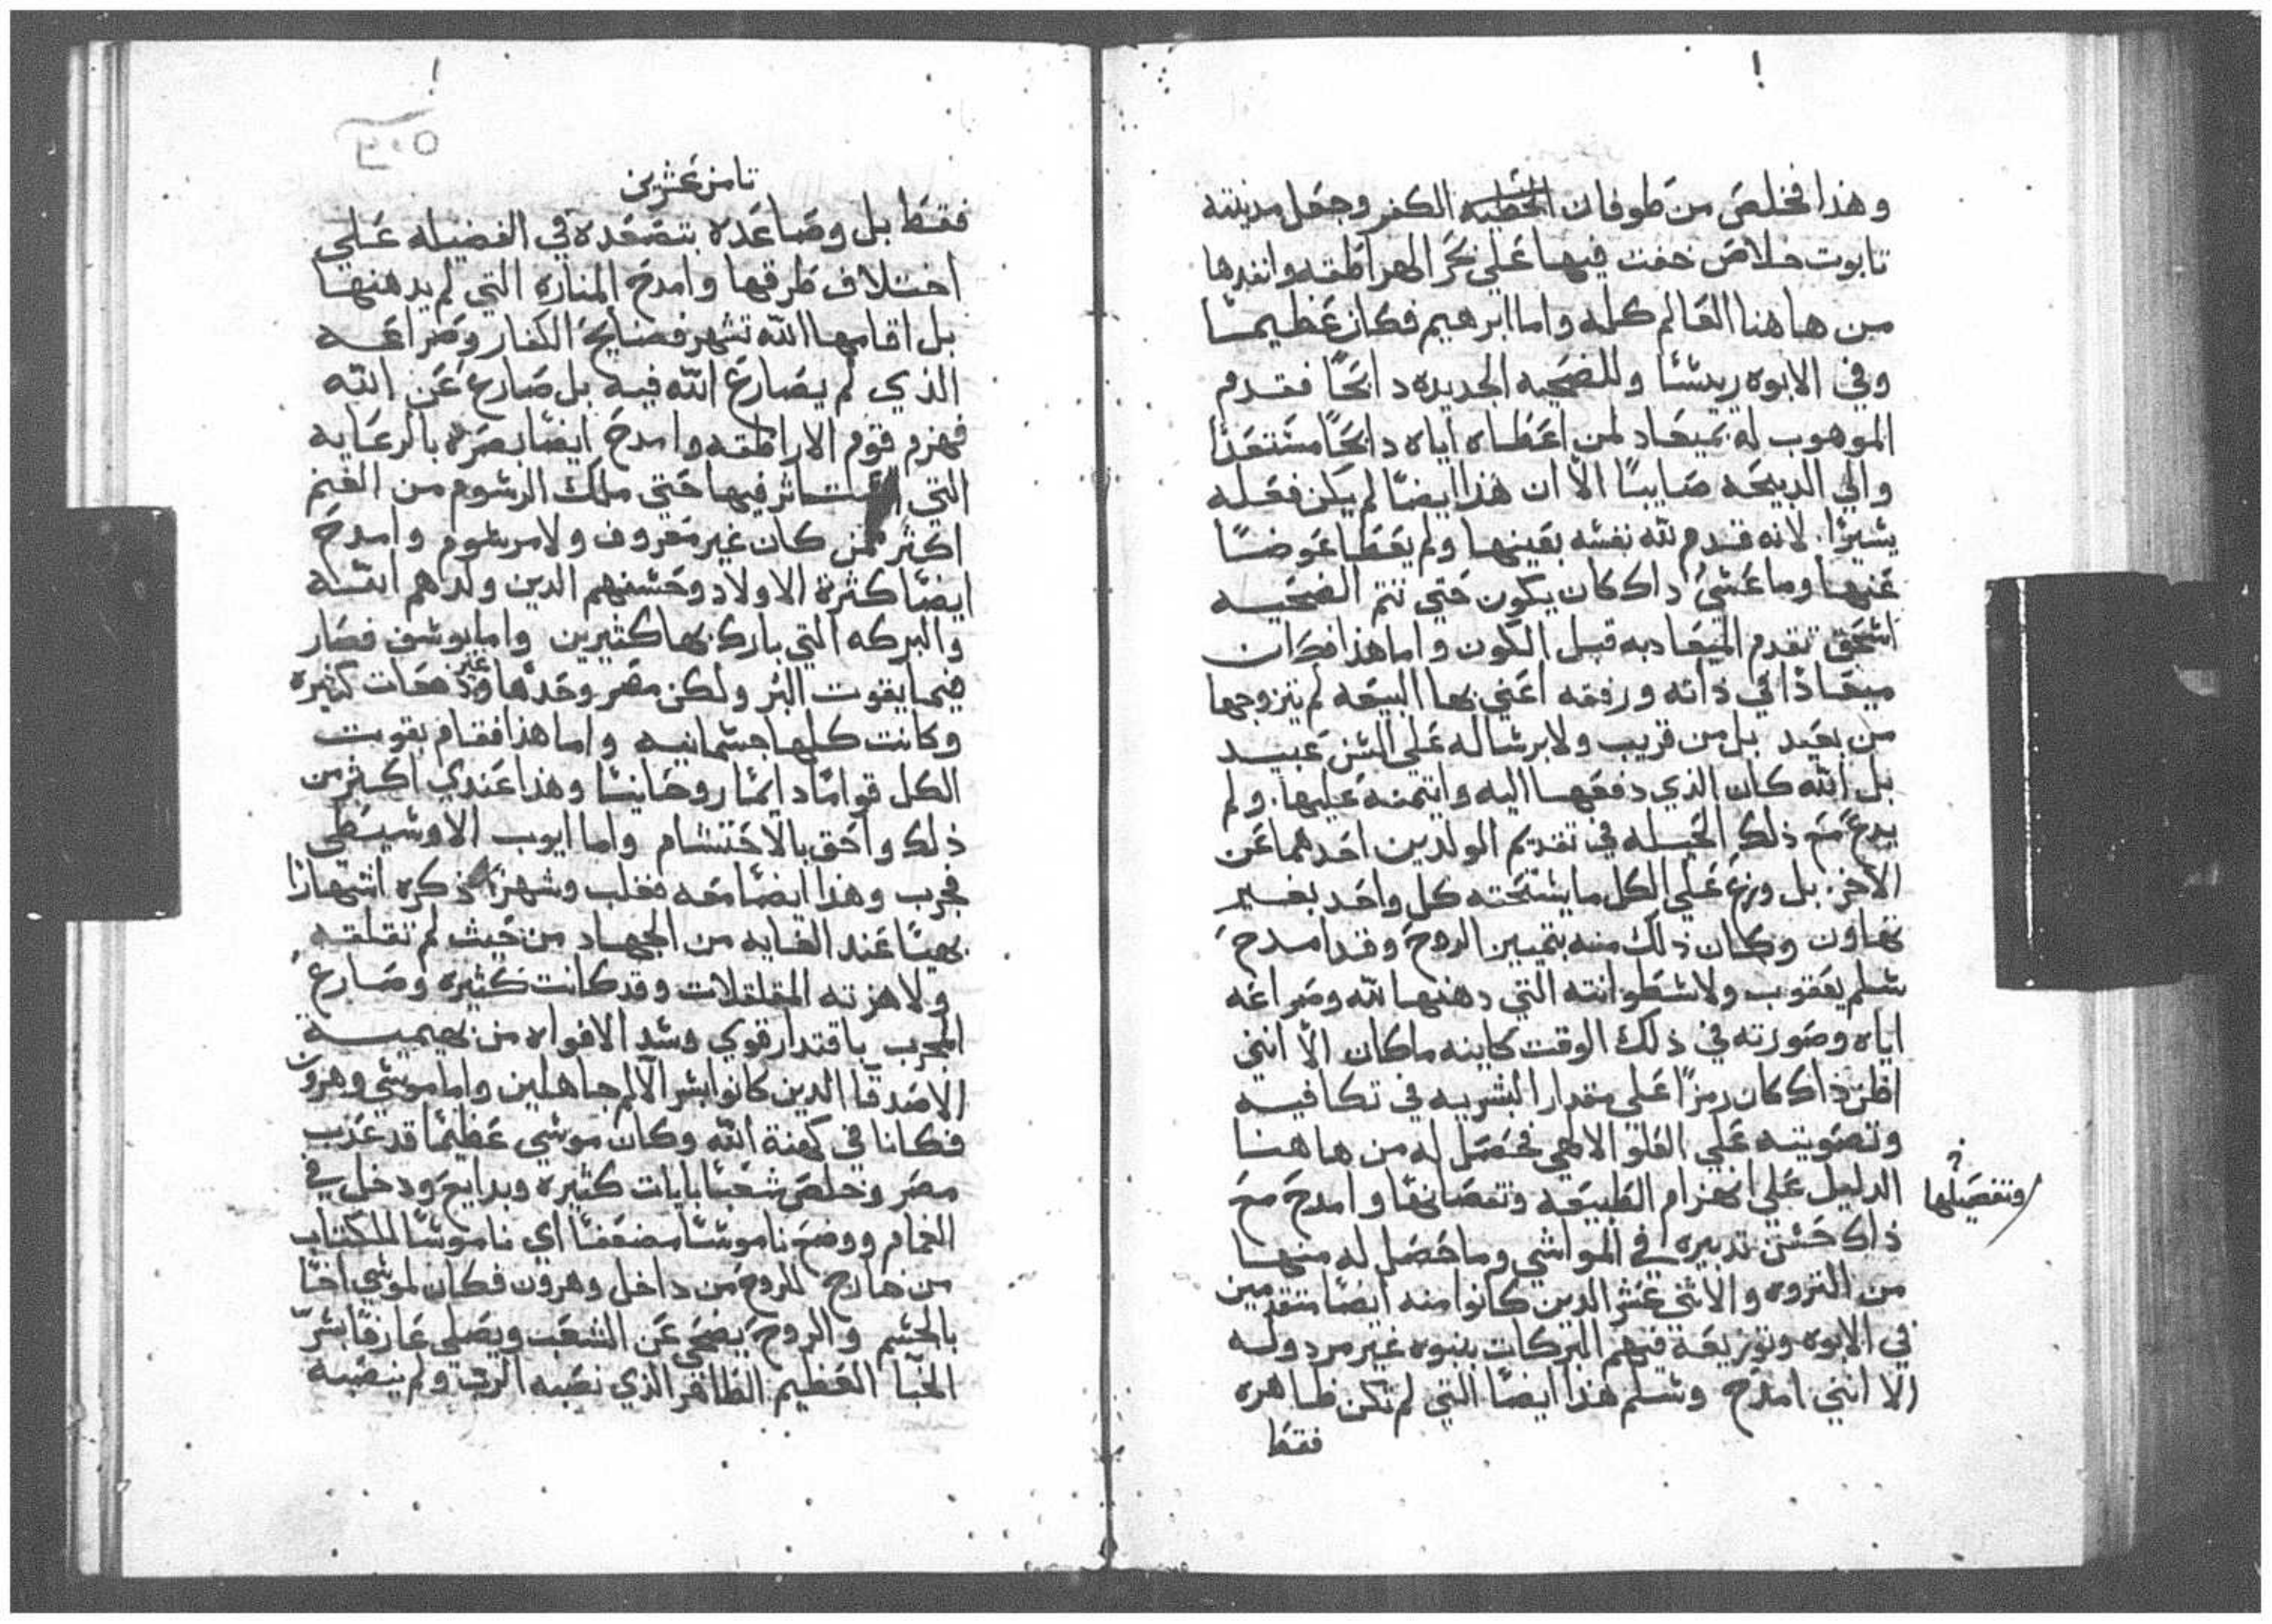 وهذا فخلص من طوفان الخطيه الكفر وجعل مدينته
تابوت خلاص خفت فيها علي بحر الهراطقه وانفدها
من هاهنا العالم كله واما ابرهيم فكان عظيمًا
وفي الابوه ريسًا وللضحيه الجديده دابحًا فقدم
الموهوب له بميعاد لمن اعطاه اياه دابحًا مستعدًا
والي الدبيحه صايبًا الا ان هذا ايضًا لم يكن فعله
يسيرًا. لانه قدم لله نفسه بعينها ولم يعطا عوضًا
عنها وما عسي داك كان يكون حتي تتم الضحيه
اسحق تقدم الميعاد به قبل الكون واما هذا فكان
ميعادًا في ذاته ورفقه اعني بها البيعه لم يتزوجها
من بعيد بل من قريب ولا برساله علي السن عبيد
بل الله كان الذي دفعها اليه وايتمنه عليها. ولم
يدع مع ذلك الحيله في تقديم الولدين احدهما عن
الاخر. بل وزع علي الكل ما يستحقه كل واحد بغير
تهاون وكان ذلك منه بتمييز الروح وقد امدح
سلم يعقوب ولاسطوانته التي دهنها لله وصراعه
اياه وصورته في ذلك الوقت كاينه ماكان الا انني
اظن ذاك كان رمزًا علي مقدار البشريه في تكافيه
وتصويته علي العلو الالهي فحصل له من هاهنا
الدليل علي انهزام الطبيعه ونقصانها وامدح مع
وتفصيلها
ذاك حسن تدبيره في المواشي وما حصل له منها
من الثروه والاثني عشر الدين كانوا منه ايضًا متقدمين
في الابوه وتوزيعه فيهم البركات بنبوه غير مردوله
الا انني امدح وسلم هذا ايضًا التي لم تكن ظاهره
فقط
ثامن عشرين
فقط بل وصاعده بتصعده في الفضيله علي
اختلاف طرقها وامدح المناره التي لم يدهنها
بل اقامها الله تشهر فضايح الكفار وصراعه
الذي لم يصارع الله فيه بل صارع عن الله
فهزم قوم الاراطقه وامدح ايضًا بصره بالرعايه
التي فيها حتي ملك الرسوم من الغنم
اكثر ممن كان غير معروف ولا مرسوم وامدح
ايضًا كثرة الاولاد وحسنهم الدين ولدهم الله
والبركه التي بارك بها كثيرين واما يوسف فصار
فيما يقوت البر ولكن مصر وحدها وغير دفعات كثيره
وكانت كلها جسمانيه واما هذا فقام بقوت
الكل قوامًا دايمًا روحانيًا وهذا عندي اكثر من
ذلك واحق بالاحتشام واما ايوب الاوسيطي
فجرب وهذا ايضًا معه فغلب وشهر ذكره اشهارًا
بهيًا عند الغايه من الجهاد من حيث لم تقلقه
ولا هزته المقلقلات وقد كانت كثيره وصارع
المجرب باقتدار قوي وشد الافواه من بهيمية
الاصدقا الدين كانوا بسر الالم جاهلين واما موسي وهرون
فكانا في كهنة الله وكان موسي عظيمًا قد عذب
مصر وخلص شعبًا بايات كثيره وبدايع ودخل في
الغمام ووضع ناموسًا مضعفًا اي ناموسًا للكتاب
من خارج للروح من داخل وهرون فكان لموسي اخًا
بالجسم والروح يضحي عن الشعب ويصلي عارفًا بسر
الخبا العظيم الظافر الذي نصبه الرب ولم ينصبه